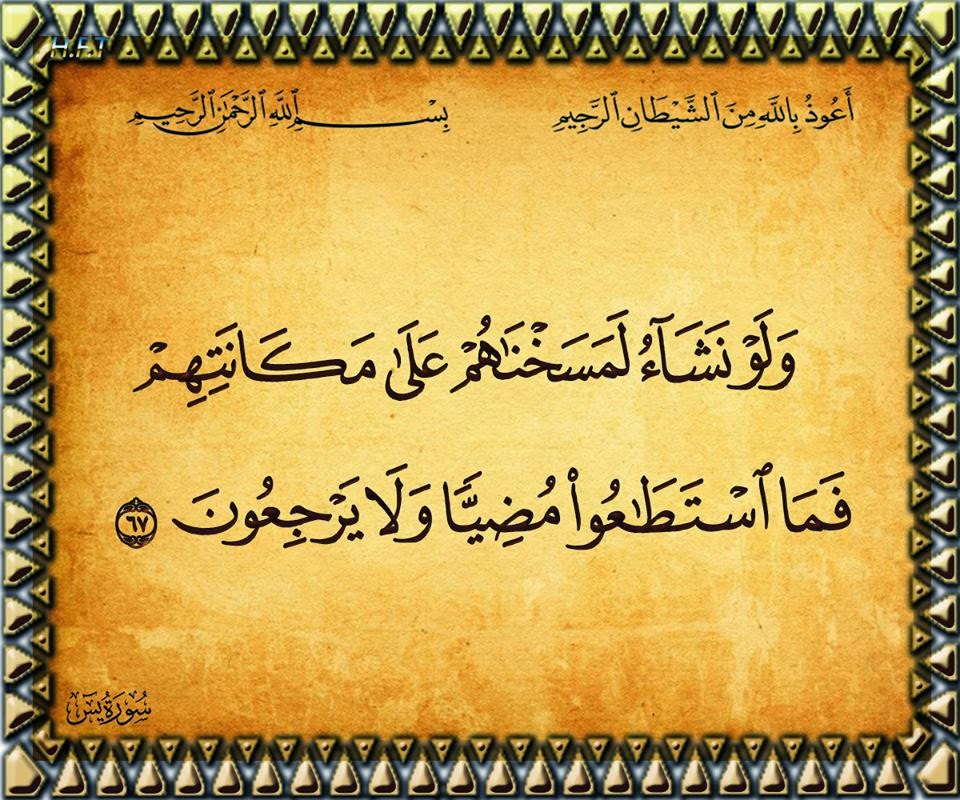 H.F.T
أَعُوذُ بِاللَّهِ مِنَ ٱلشَّيْطَانِ ٱلرَّجِيمِ
بِسْمِ ٱللَّهِ ٱلرَّحْمَٰنِ ٱلرَّحِيمِ
وَلَوْ نَشَآءُ لَمَسَخْنَٰهُمْ عَلَىٰ مَكَانَتِهِمْ
فَمَا ٱسْتَطَٰعُوا۟ مُضِيًّا وَلَا يَرْجِعُونَ ٦٧
سُورَةُ يسٓ